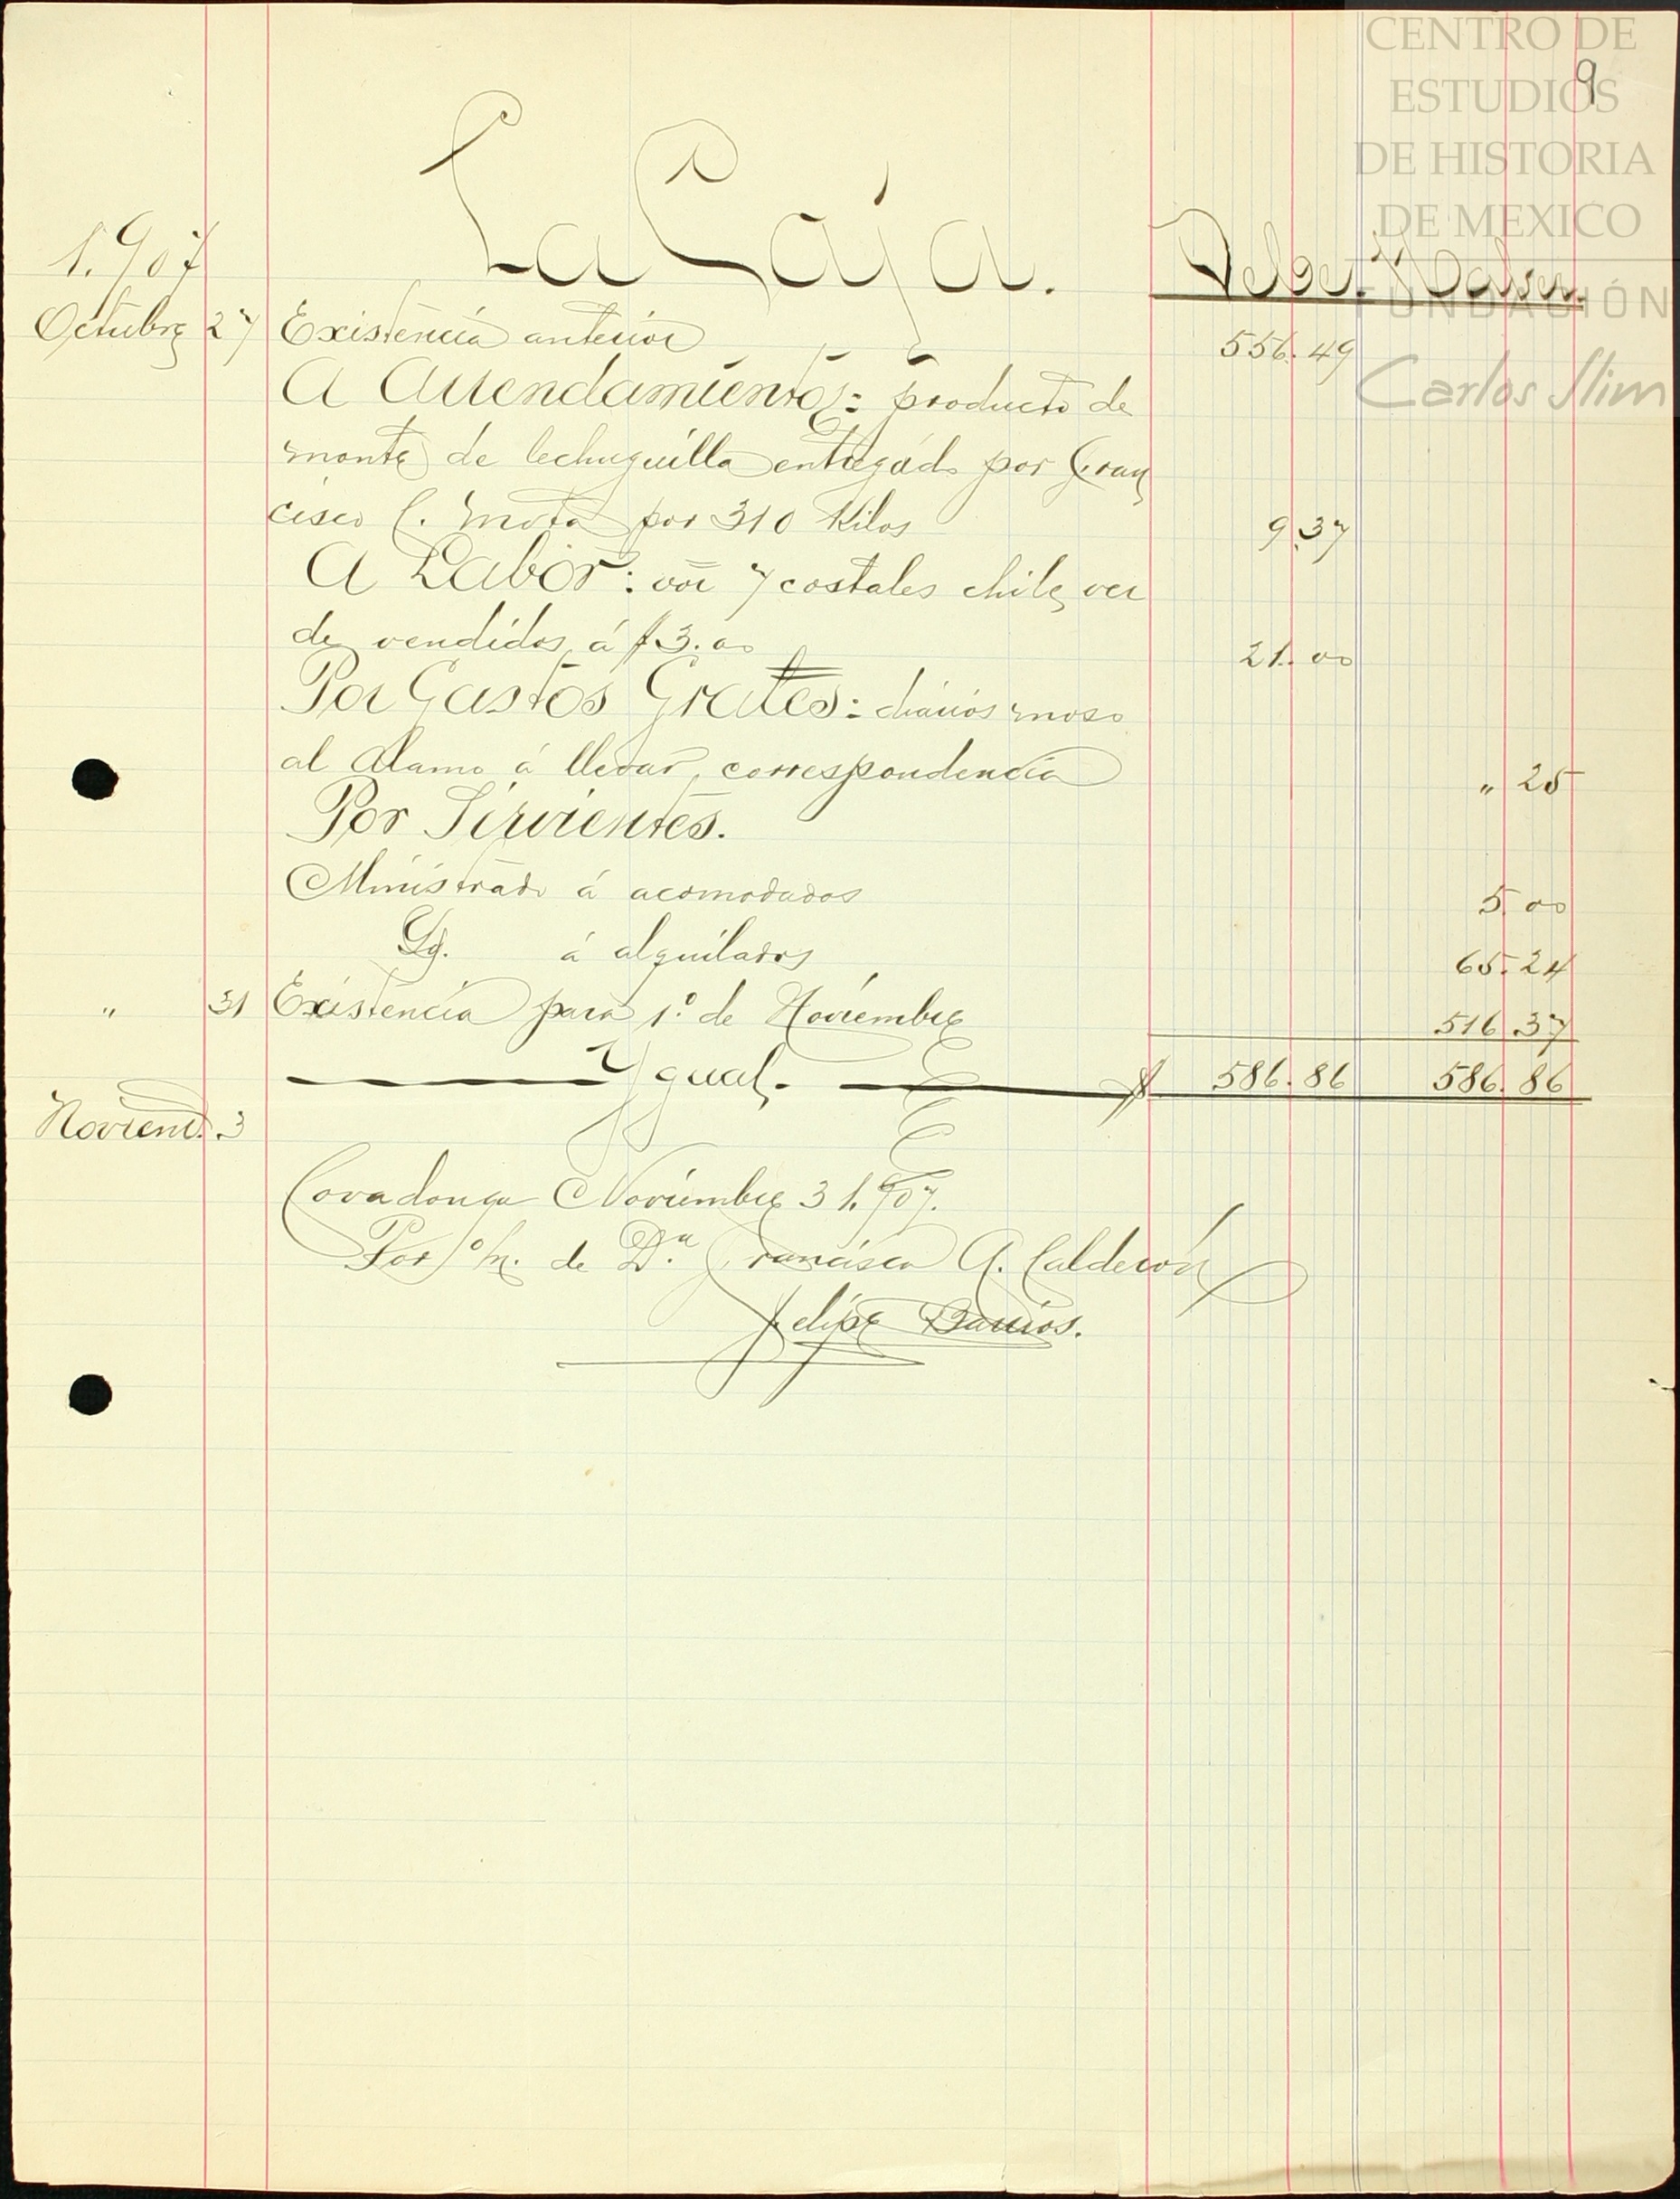 CENTRO DE
ESTUDIOS
DE HISTORIA
DE MEXICO
FUNDACIÓN
Carlos Slim
9
La Caja.
1.907 Debe. Haber.
Octubre 27 Existencia anterior 556.49
A Arrendamientos: producto de
monte de lechuguilla entregado por Fran
cisco C. Mota por 310 Kilos 9.37
A Labor: vor 7 costales chile ver
de vendidos á $3.00 21.00
Por Gastos Grales: diarios moso
al Alamo á llevar correspondencia " 25
Por Sirvientes.
Ministrado á acomodados 5.00
Yd. á alquilados 65.24
" 31 Existencia para 1.º de Noviembre 516.37
Ygual. $ 586.86 586.86
Noviem. 3
Covadonga Noviembre 3 1.907.
Por o/m. de D.ª Francisca A. Calderón
Felipe Barrios.